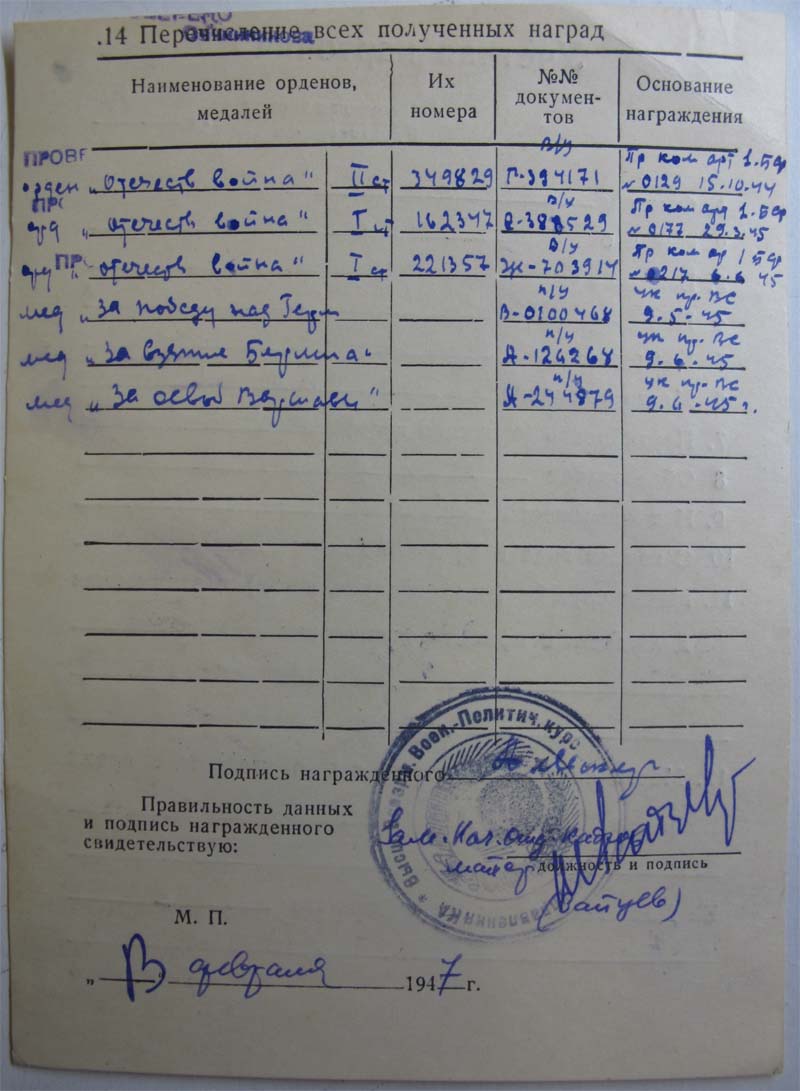 .14 Перечисление всех полученных наград
Наименование орденов, медалей
Их номера
№№ документов
Основание награждения
ПРОВЕ
в/у
Пр ком арт 1.БФ
орден „Отечеств война" II ст 349829 Г-394171 №0129 15.10.44
ПРО
в/у
Пр ком арт 1.БФ
орд „отечеств война" I ст 162347 №0177 29.3.45
ПРО
в/у
Пр ком ар 1 БФ
орд „отечеств война" I ст 221357 Ж-703914 №0217 6.6 45
п/у
ук пр. ВС
мед „За победу над Герм В-0100468 9.5.45
п/у
ук пр. ВС
мед „За взятие Берлина" А-126268 9.6.45
п/у
ук пр. ВС
мед „За освоб Варшавы" А-244879 9.6.45г.
Воен.-Политич. курс
Подпись награжденного
Правильность данных
и подпись награжденного
свидетельствую:
Зам. Нач. отд. кадров
майор
должность и подпись
(Зайцев)
М. П.
„ февраля 1947 г.